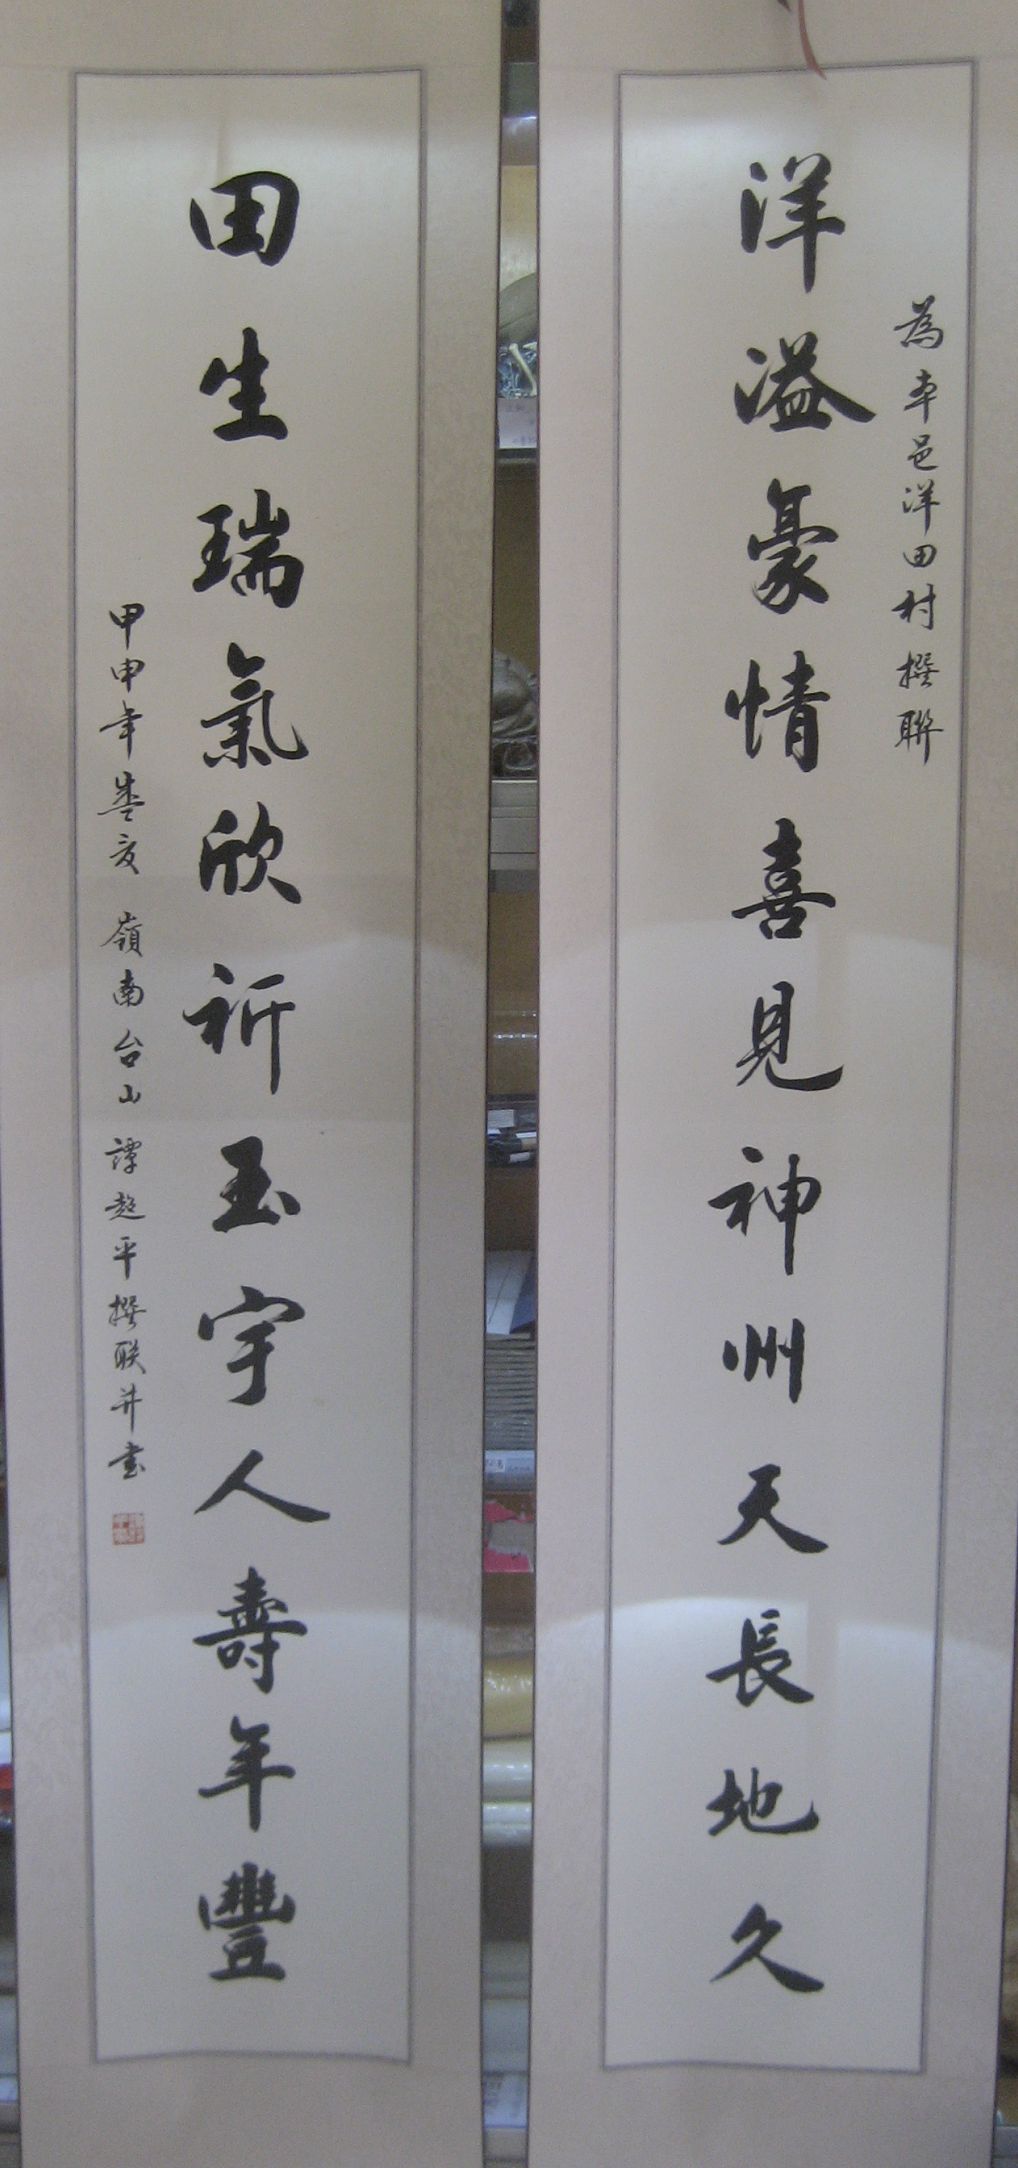 為本邑洋田村撰聯
洋溢豪情喜見神州天長地久
田生瑞氣欣祈玉宇人壽年豐
甲申年盛夏 嶺南台山 譚超平撰联并書